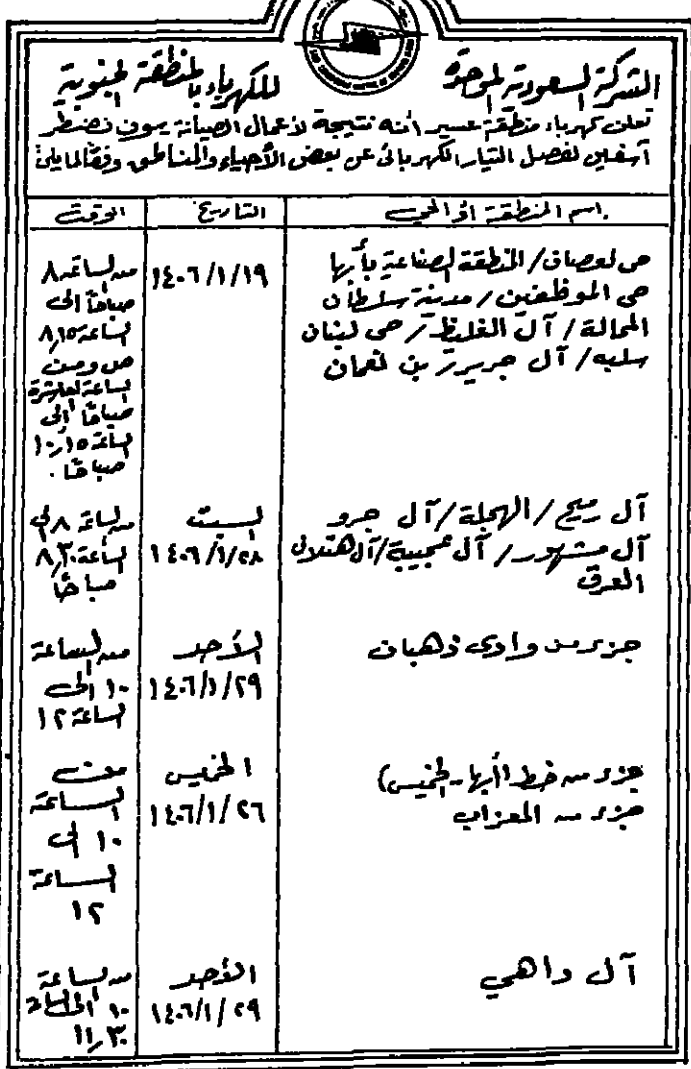 الشركة السعودية الموحدة للكهرباء بالمنطقة الجنوبية
تعلن كهرباء منطقة عسير أنه نتيجة لأعمال الصيانة سوف تضطر
آسفين لفصل التيار الكهربائى عن بعض الأحياء والمناطق وفقاً لما يلى:
اسم المنطقة أو الحى التاريخ الوقت
حى لعصان / المنطقة الصناعية بأبها
حى الموظفين / مدينة سلطان
المحالة / آل الغليظ / حى لبنان
سلبه / آل جرير / بن نعمان
١٤٠٦/١/١٩
من الساعة ٨
صباحاً الى
الساعة ٨,١٥
ص ومن
الساعة العاشرة
صباحاً الى
الساعة ١٠,١٥
صباحاً.
آل رميح / الهجلة / آل جرو
آل مشهور / آل عجيبة / آل هتلان
العرق
السبت
١٤٠٦/١/٢٨
من الساعة ٨ الى
الساعة ٨,٣٠
صباحاً
جزء من وادى ذهبان
الأحد
١٤٠٦/١/٢٩
من الساعة
١٠ الى
الساعة ١٢
جزء من خط (أبها - الخميس)
جزء من المعزاب
الخميس
١٤٠٦/١/٢٦
من
الساعة
١٠ الى
الساعة
١٢
آل داهي
الأحد
١٤٠٦/١/٢٩
من الساعة
١٠ الى الساعة
١١,٣٠